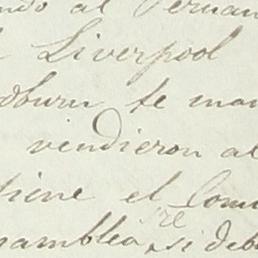 ndo al Pernam
Liverpool
dburn te man
vendieron al
tiene el Com
re
samblea, si deb